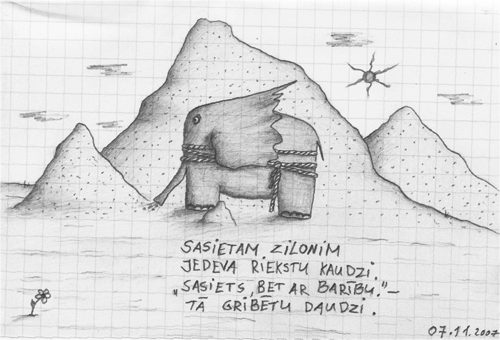 SASIETAM ZILONIM
IEDEVA RIEKSTU KAUDZI.
„SASIETS, BET AR BARĪBU."—
TĀ GRIBĒTU DAUDZI.
07.11.2007